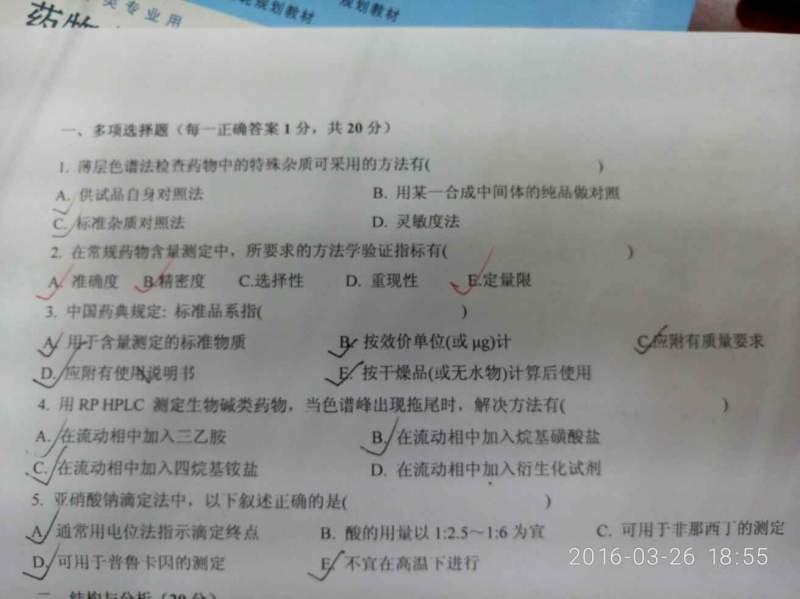 药物
类专业用
规划教材
规划教材
一、多项选择题（每一正确答案 1 分，共 20 分）
1. 薄层色谱法检查药物中的特殊杂质可采用的方法有( )
A. 供试品自身对照法 B. 用某一合成中间体的纯品做对照
C. 标准杂质对照法 D. 灵敏度法
2. 在常规药物含量测定中，所要求的方法学验证指标有( )
A. 准确度 B.精密度 C.选择性 D. 重现性 E.定量限
3. 中国药典规定: 标准品系指( )
A. 用于含量测定的标准物质 B. 按效价单位(或 μg)计 C.应附有质量要求
D. 应附有使用说明书 E. 按干燥品(或无水物)计算后使用
4. 用 RP HPLC 测定生物碱类药物，当色谱峰出现拖尾时，解决方法有( )
A. 在流动相中加入三乙胺 B. 在流动相中加入烷基磺酸盐
C. 在流动相中加入四烷基铵盐 D. 在流动相中加入衍生化试剂
5. 亚硝酸钠滴定法中，以下叙述正确的是( )
A. 通常用电位法指示滴定终点 B. 酸的用量以 1:2.5～1:6 为宜 C. 可用于非那西丁的测定
D. 可用于普鲁卡因的测定 E. 不宜在高温下进行
2016-03-26 18:55
二、结构与分析（20 分）